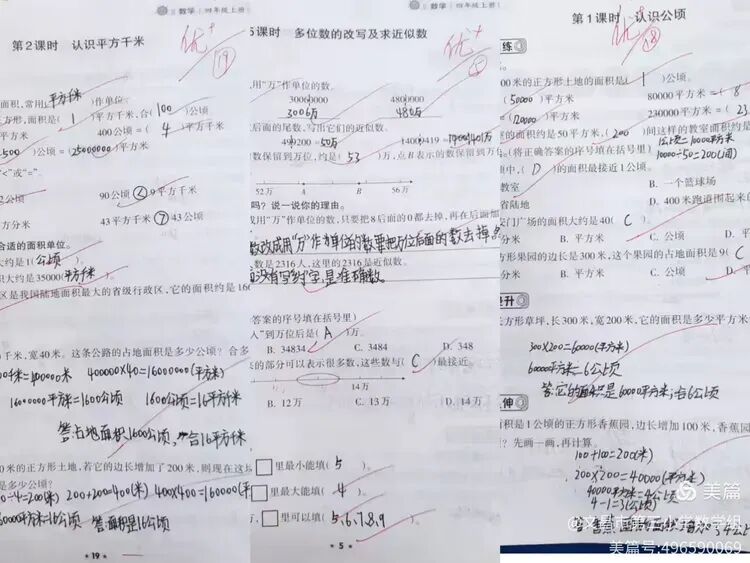 数学 四年级上册
第2课时 认识平方千米
优+
19
面积,常用(平方千米)作单位。
形,面积是(1)平方千米,合(100)公顷
平方米 400公顷=(4)平方千米
500)公顷=(25000000)平方米
“<”或“=”。
2公顷 90公顷<9平方千米
方分米 43平方千米>43公顷
合适的面积单位。
大约是1(公顷)
积大约是35000(平方千米)
区是我国陆地面积最大的省级行政区,它的面积约是166
千米,宽40米。这条公路的占地面积是多少公顷?合多
400000×40=16000000(平方米)
16000000平方米=1600公顷 1600公顷=16平方千米
答:占地面积1600公顷,合16平方千米
0米的正方形土地,若它的边长增加了200米,则现在这块
是多少公顷?
0÷4=200(米) 200+200=400(米) 400×400=160000(平
60000平方米=16公顷 答:面积是16公顷
19
数学 四年级上册
多位数的改写及求近似数
优+
用“万”作单位的数。
30060000 4800000
3006万 480万
后面的尾数,写出它们的近似数。
499200≈50万
数保留到万位,约是(53)万,点B表示的数保留到万
52万 A B 56万
吗?说一说你的理由。
成用“万”作单位的数,只要把8后面的0都去掉,再在后面加
数改成用“万”作单位的数要把万位后面的数去掉,
数是2316人,这里的2316是近似数。
没有写约字是准确数。
答案的序号填在括号里)
人”到万位后是(A)万。
B. 34834 C. 3484 D. 348
的部分可以表示很多数,这些数与(C)最接近。
14万
B. 12万 C. 13万 D. 14万
□里最小能填(5)。
□里最大能填(4)。
□里可以填(5,6,7,8,9)
5
第1课时 认识公顷
优+
18
练
00米的正方形土地的面积是(1)公顷。
(50000)平方米 80000平方米=(8
(120000)平方米 230000平方米=(23
室的面积约是50平方米,(200)间这样的教室面积约是
1公顷=10000平方米
10000÷50=200(间)
(将正确答案的序号填在括号里)
中,(D)的面积最接近1公顷。
教室 B. 一个篮球场
省陆地 D. 400米跑道围起来的
安门广场的面积大约是40(C)
分米 B. 平方米 C. 公顷 D. 平
方形果园的边长是300米,这个果园的占地面积是9(C
分米 B. 平方米 C. 公顷 D.
提升
方形草坪,长300米,宽200米,它的面积是多少平方米
300×200=60000(平方米)
60000平方米=6公顷
答:它的面积是60000平方米;合6公顷
延伸
面积是1公顷的正方形香蕉园,边长增加100米,香蕉园
?先画一画,再计算。
100+100=200(米)
200×200=40000(平方米)
40000平方米=4公顷
4-1=3(公顷)
美篇
美篇号:496590069